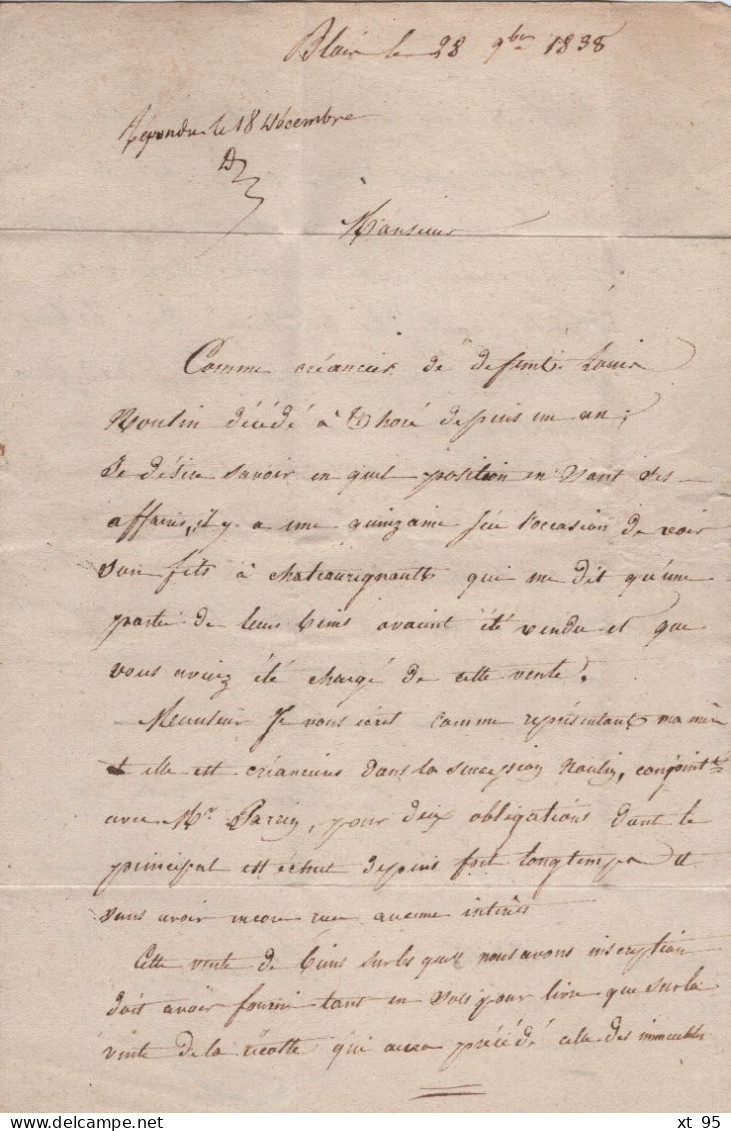 Blois le 28 9bre 1838
Répondu le 18 Décembre
Monsieur
Comme créancier de defunt Louis
Moulin décédé à Thoré depuis un an;
Je désire savoir en quel position en sont ses
affaires, il y a une quinzaine j'eu l'occasion de voir
son fils à chateaurignault qui me dit qu'une
partie de leurs biens avaient été vendu et que
vous aviez été chargé de cette vente.
Monsieur Je vous écret comme représentant ma mère
et elle est créanciere dans la succession Moulin, conjoint.t
avec Mr Parin, pour deux obligations dont le
principal est échut depuis fort longtemps et
sans avoir encore reçu aucune intérêts
Cette vente de biens sur les quels nous avons inscryption
doit avoir fourni tant en sols pour livre que sur la
vente de la récolte qui aura précédé celle des immeubles
xt 95